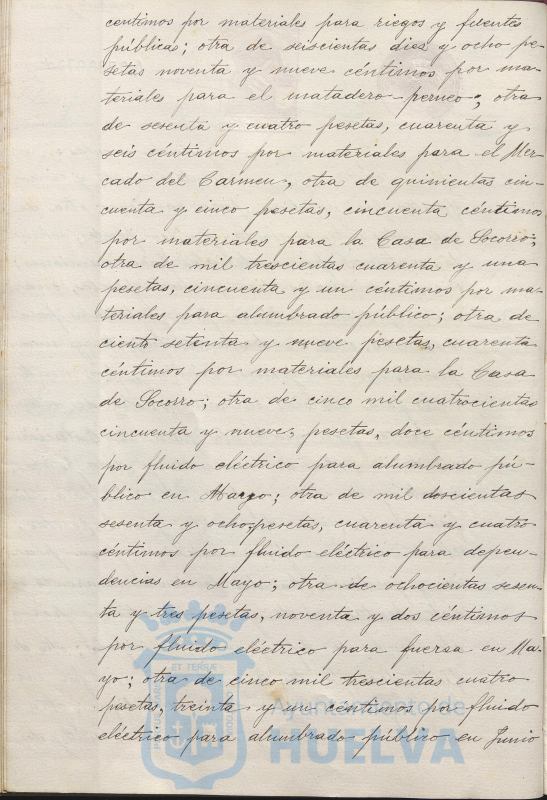 centimos por materiales para riegos y fuentes
públicas; otra de seiscientas diez y ocho pe-
setas noventa y nueve céntimos por ma-
teriales para el matadero perneo; otra
de sesenta y cuatro pesetas, cuarenta y
seis céntimos por materiales para el Mer-
cado del Carmen, otra de quinientas cin-
cuenta y cinco pesetas, cincuenta céntimos
por materiales para la Casa de Socorro;
otra de mil trescientas cuarenta y una
pesetas, cincuenta y un céntimos por ma-
teriales para alumbrado público; otra de
ciento setenta y nueve pesetas, cuarenta
céntimos por materiales para la Casa
de Socorro; otra de cinco mil cuatrocientas
cincuenta y nueve, pesetas, doce céntimos
por fluido eléctrico para alumbrado pú-
blico en Marzo; otra de mil doscientas
sesenta y ocho pesetas, cuarenta y cuatro
céntimos por fluido eléctrico para depen-
dencias en Mayo; otra de ochocientas sesen-
ta y tres pesetas, noventa y dos céntimos
por fluido eléctrico para fuerza en Ma-
yo; otra de cinco mil trescientas cuatro
pesetas, treinta y un céntimos por fluido
eléctrico para alumbrado público en Junio
Ayuntamiento de
HUELVA